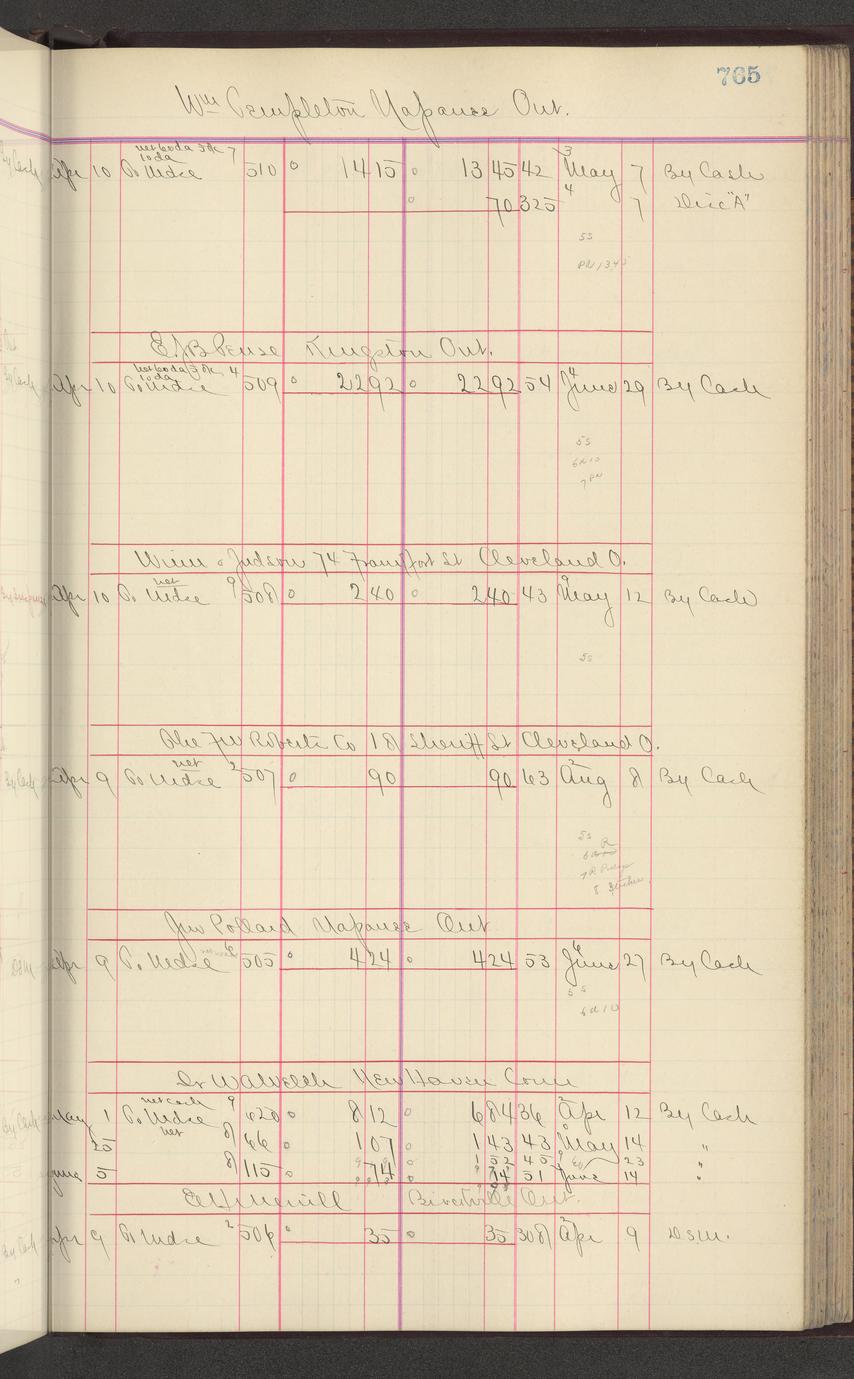 765
Wm Templeton Napanee Ont.
net 60 da 3% 7
10 da
Apr 10 To Mdse 510 14 15 13 45 42 3 May 7 By Cash
70 325 4 7 Disc "A"
5s
E.J.B. Pense Kingston Ont.
net 60 da 3% 4
10 da
Apr 10 To Mdse 509 22 92 22 92 54 4 June 29 By Cash
5s
Winn & Judson 74 Frankfort St Cleveland O.
net
Apr 10 To Mdse 9 508 2 40 2 40 43 9 May 12 By Cash
5s
The FW Roberts Co 18 Sheriff St Cleveland O.
net
Apr 9 To Mdse 2 507 90 90 63 2 Aug 8 By Cash
5s
Jno Pollard Napanee Ont
Apr 9 To Mdse 6 505 4 24 4 24 53 6 June 27 By Cash
5s
6 d 10
New Haven Conn
net cash 9
May 1 To Mdse 620 8 12 6 84 36 2 Apr 12 By Cash
net
25 8 66 1 07 1 43 43 May 14 "
1 52 45 23 "
June 5 8 115 74 74 51 June 14 "
Ont.
Apr 9 To Mdse 2 506 35 35 308 2 Apr 9 D.S.M.